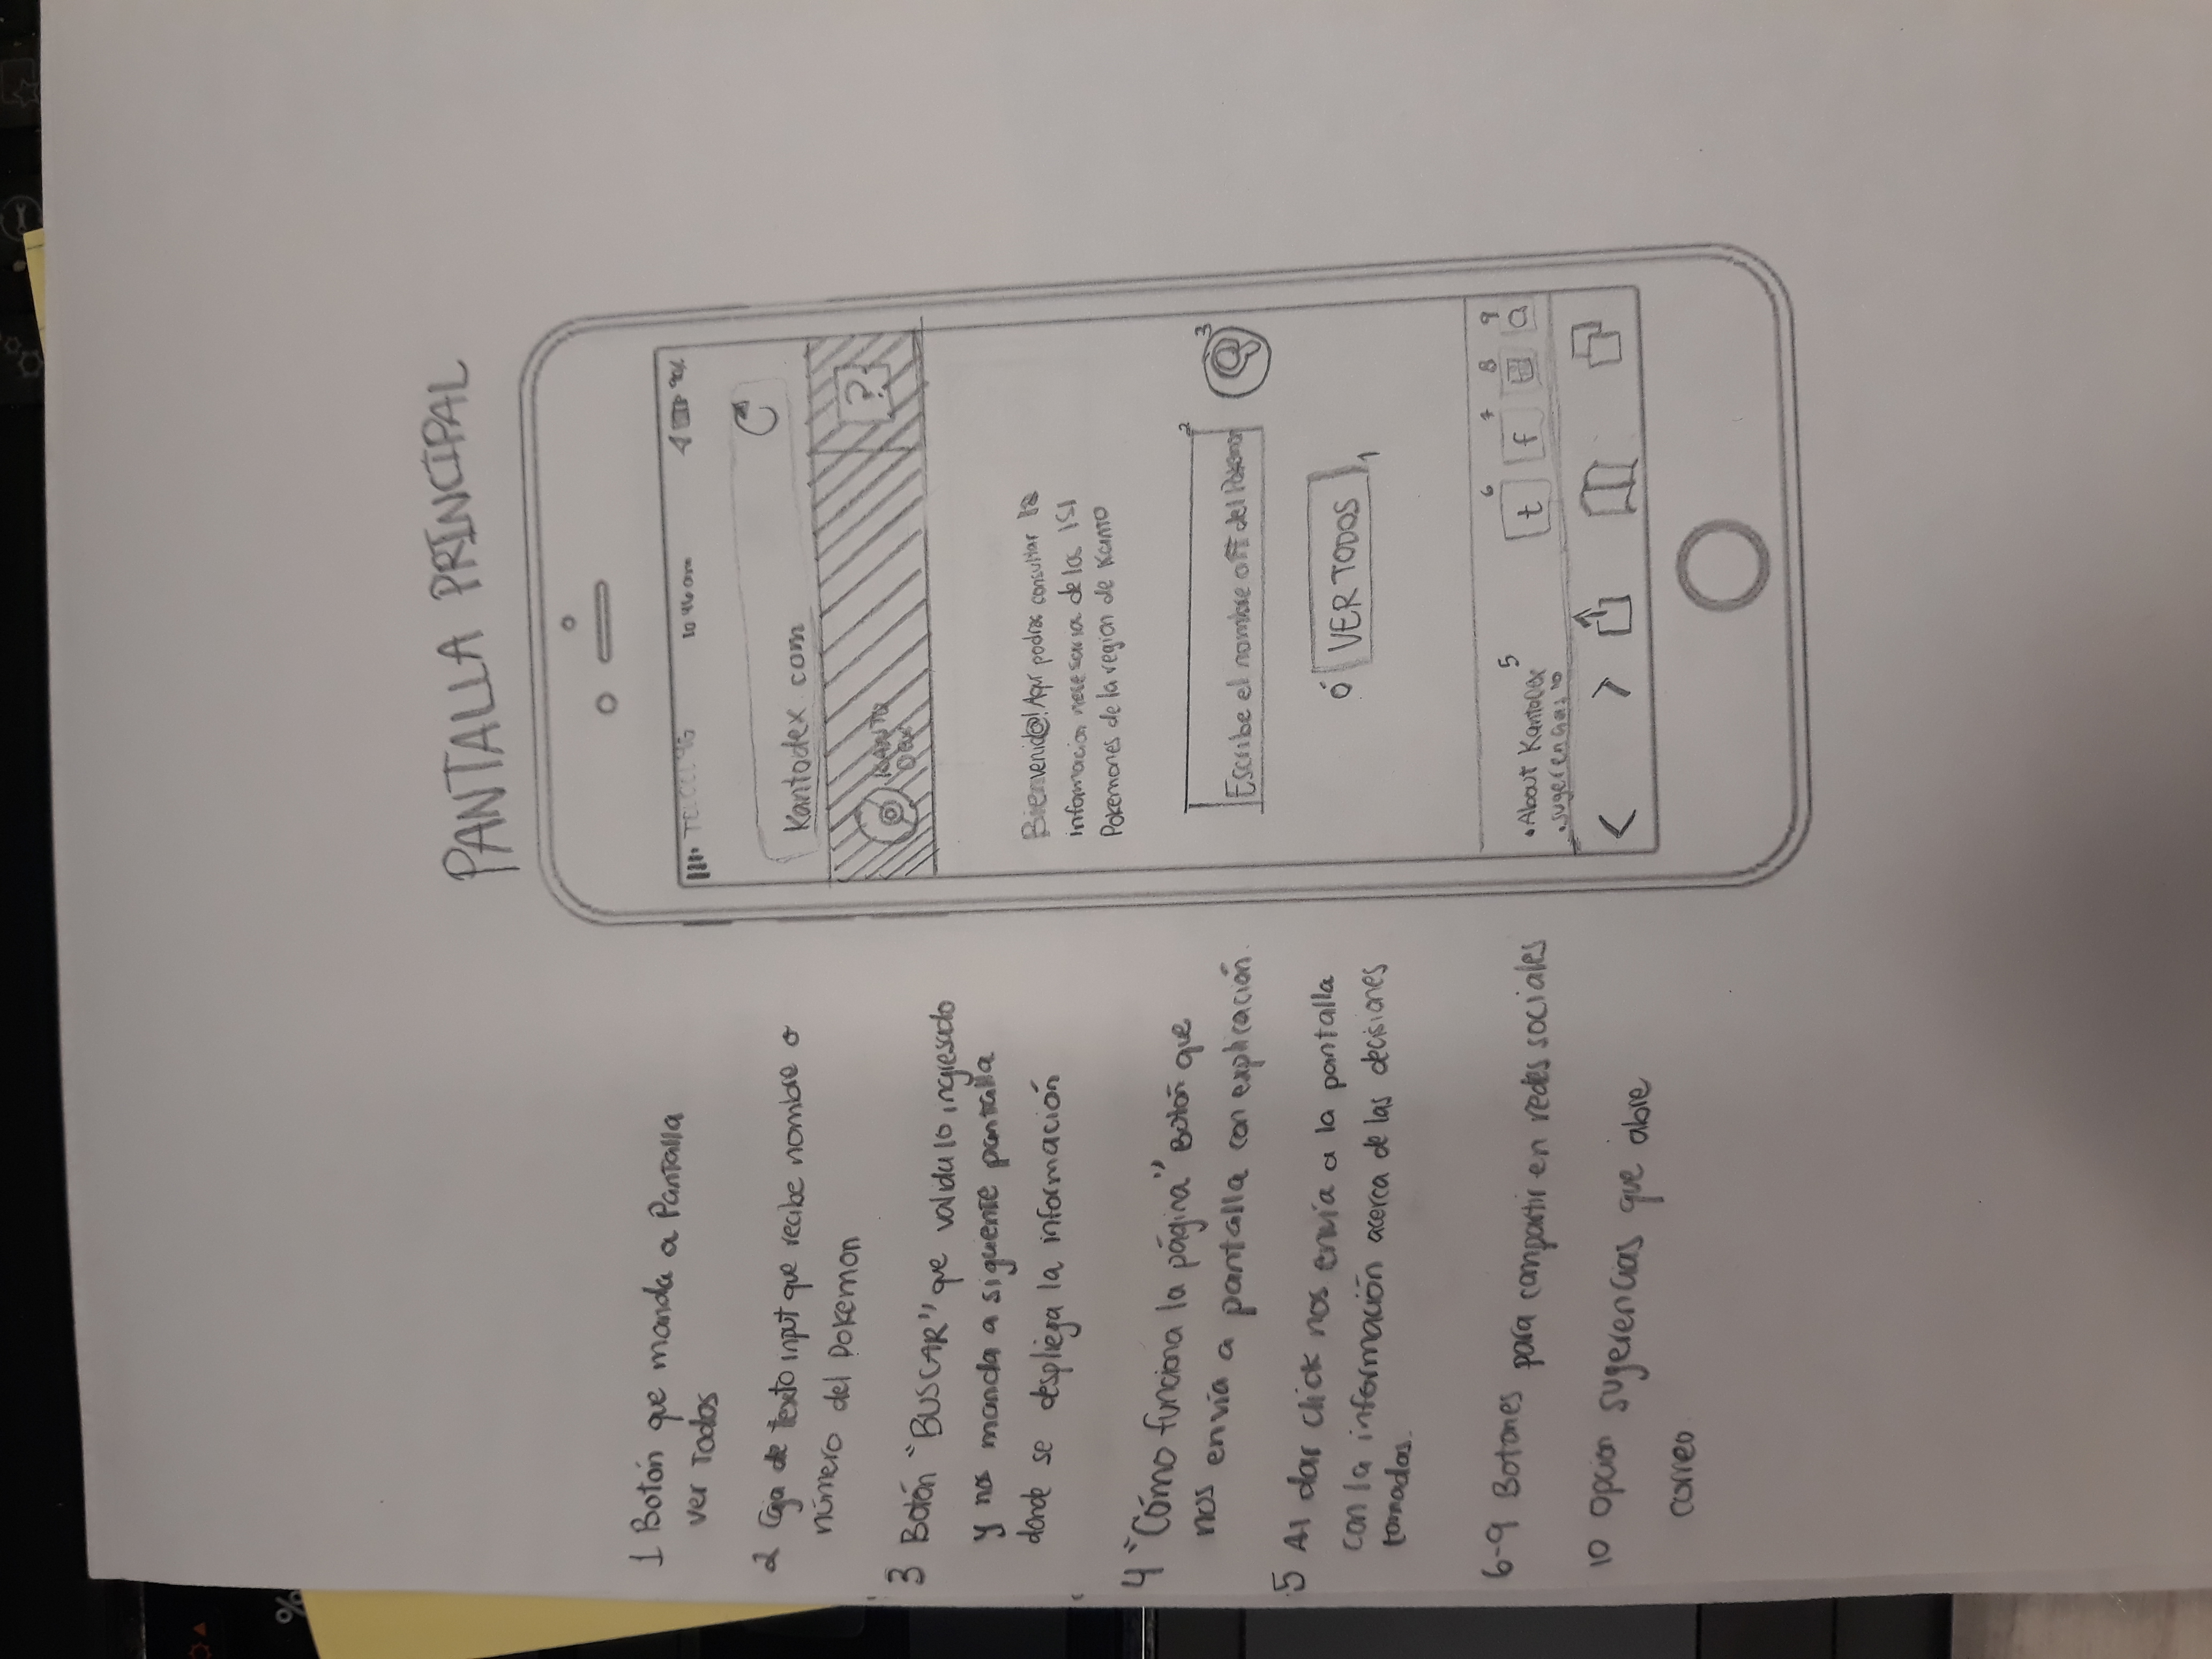 PANTALLA PRINCIPAL
1 Botón que manda a Pantalla
ver Todos
2 Caja de texto input que recibe nombre o
número del Pokemon
3 Botón "BUSCAR" que valida lo ingresado
y nos manda a siguente pantalla
donde se despliega la información
4 "Cómo funciona la página" Botón que
nos envía a pantalla con explicación.
5 Al dar click nos envía a la pantalla
con la información acerca de las decisiones
tomadas.
6-9 Botones para compartir en redes sociales
10 Opcion sugerencias que abre
correo
TELCEL 4G 10 46 am 90%
Kantodex.com
KANTO
DEX
?
Bienvenid@! Aqui podras consultar la
informacion necesaria de los 151
Pokemones de la region de Kanto
Escribe el nombre o # del Pokemon 2
3
ó VER TODOS 1
• About KantoDex 5
• sugerencias 10
6 7 8 9
t f
< >
%